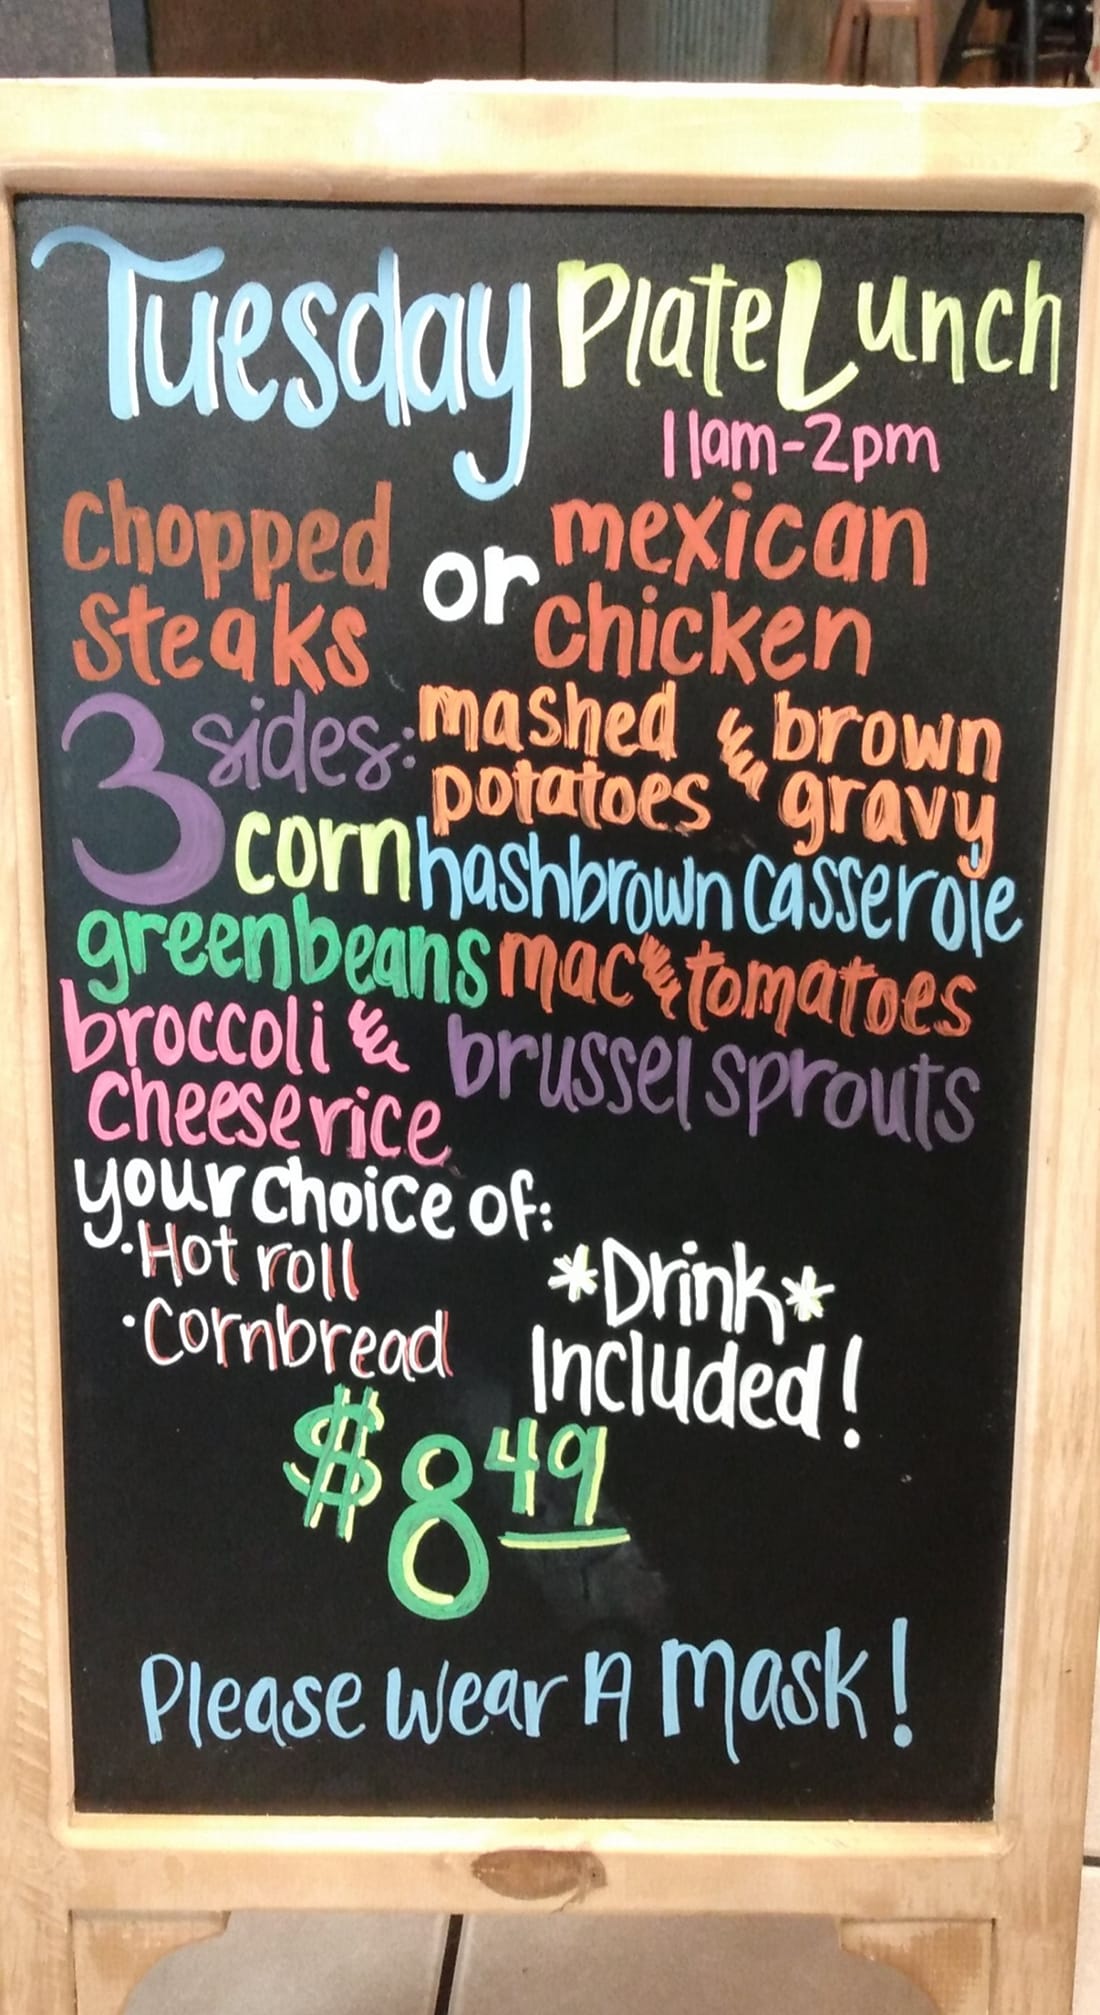 Tuesday Plate Lunch
11am-2pm
chopped steaks or mexican chicken
3 sides: mashed potatoes & brown gravy
corn hashbrown casserole
greenbeans mac & tomatoes
broccoli & cheese rice brussel sprouts
your choice of:
·Hot roll
·Cornbread
*Drink*
Included!
$8.49
Please wear A mask!